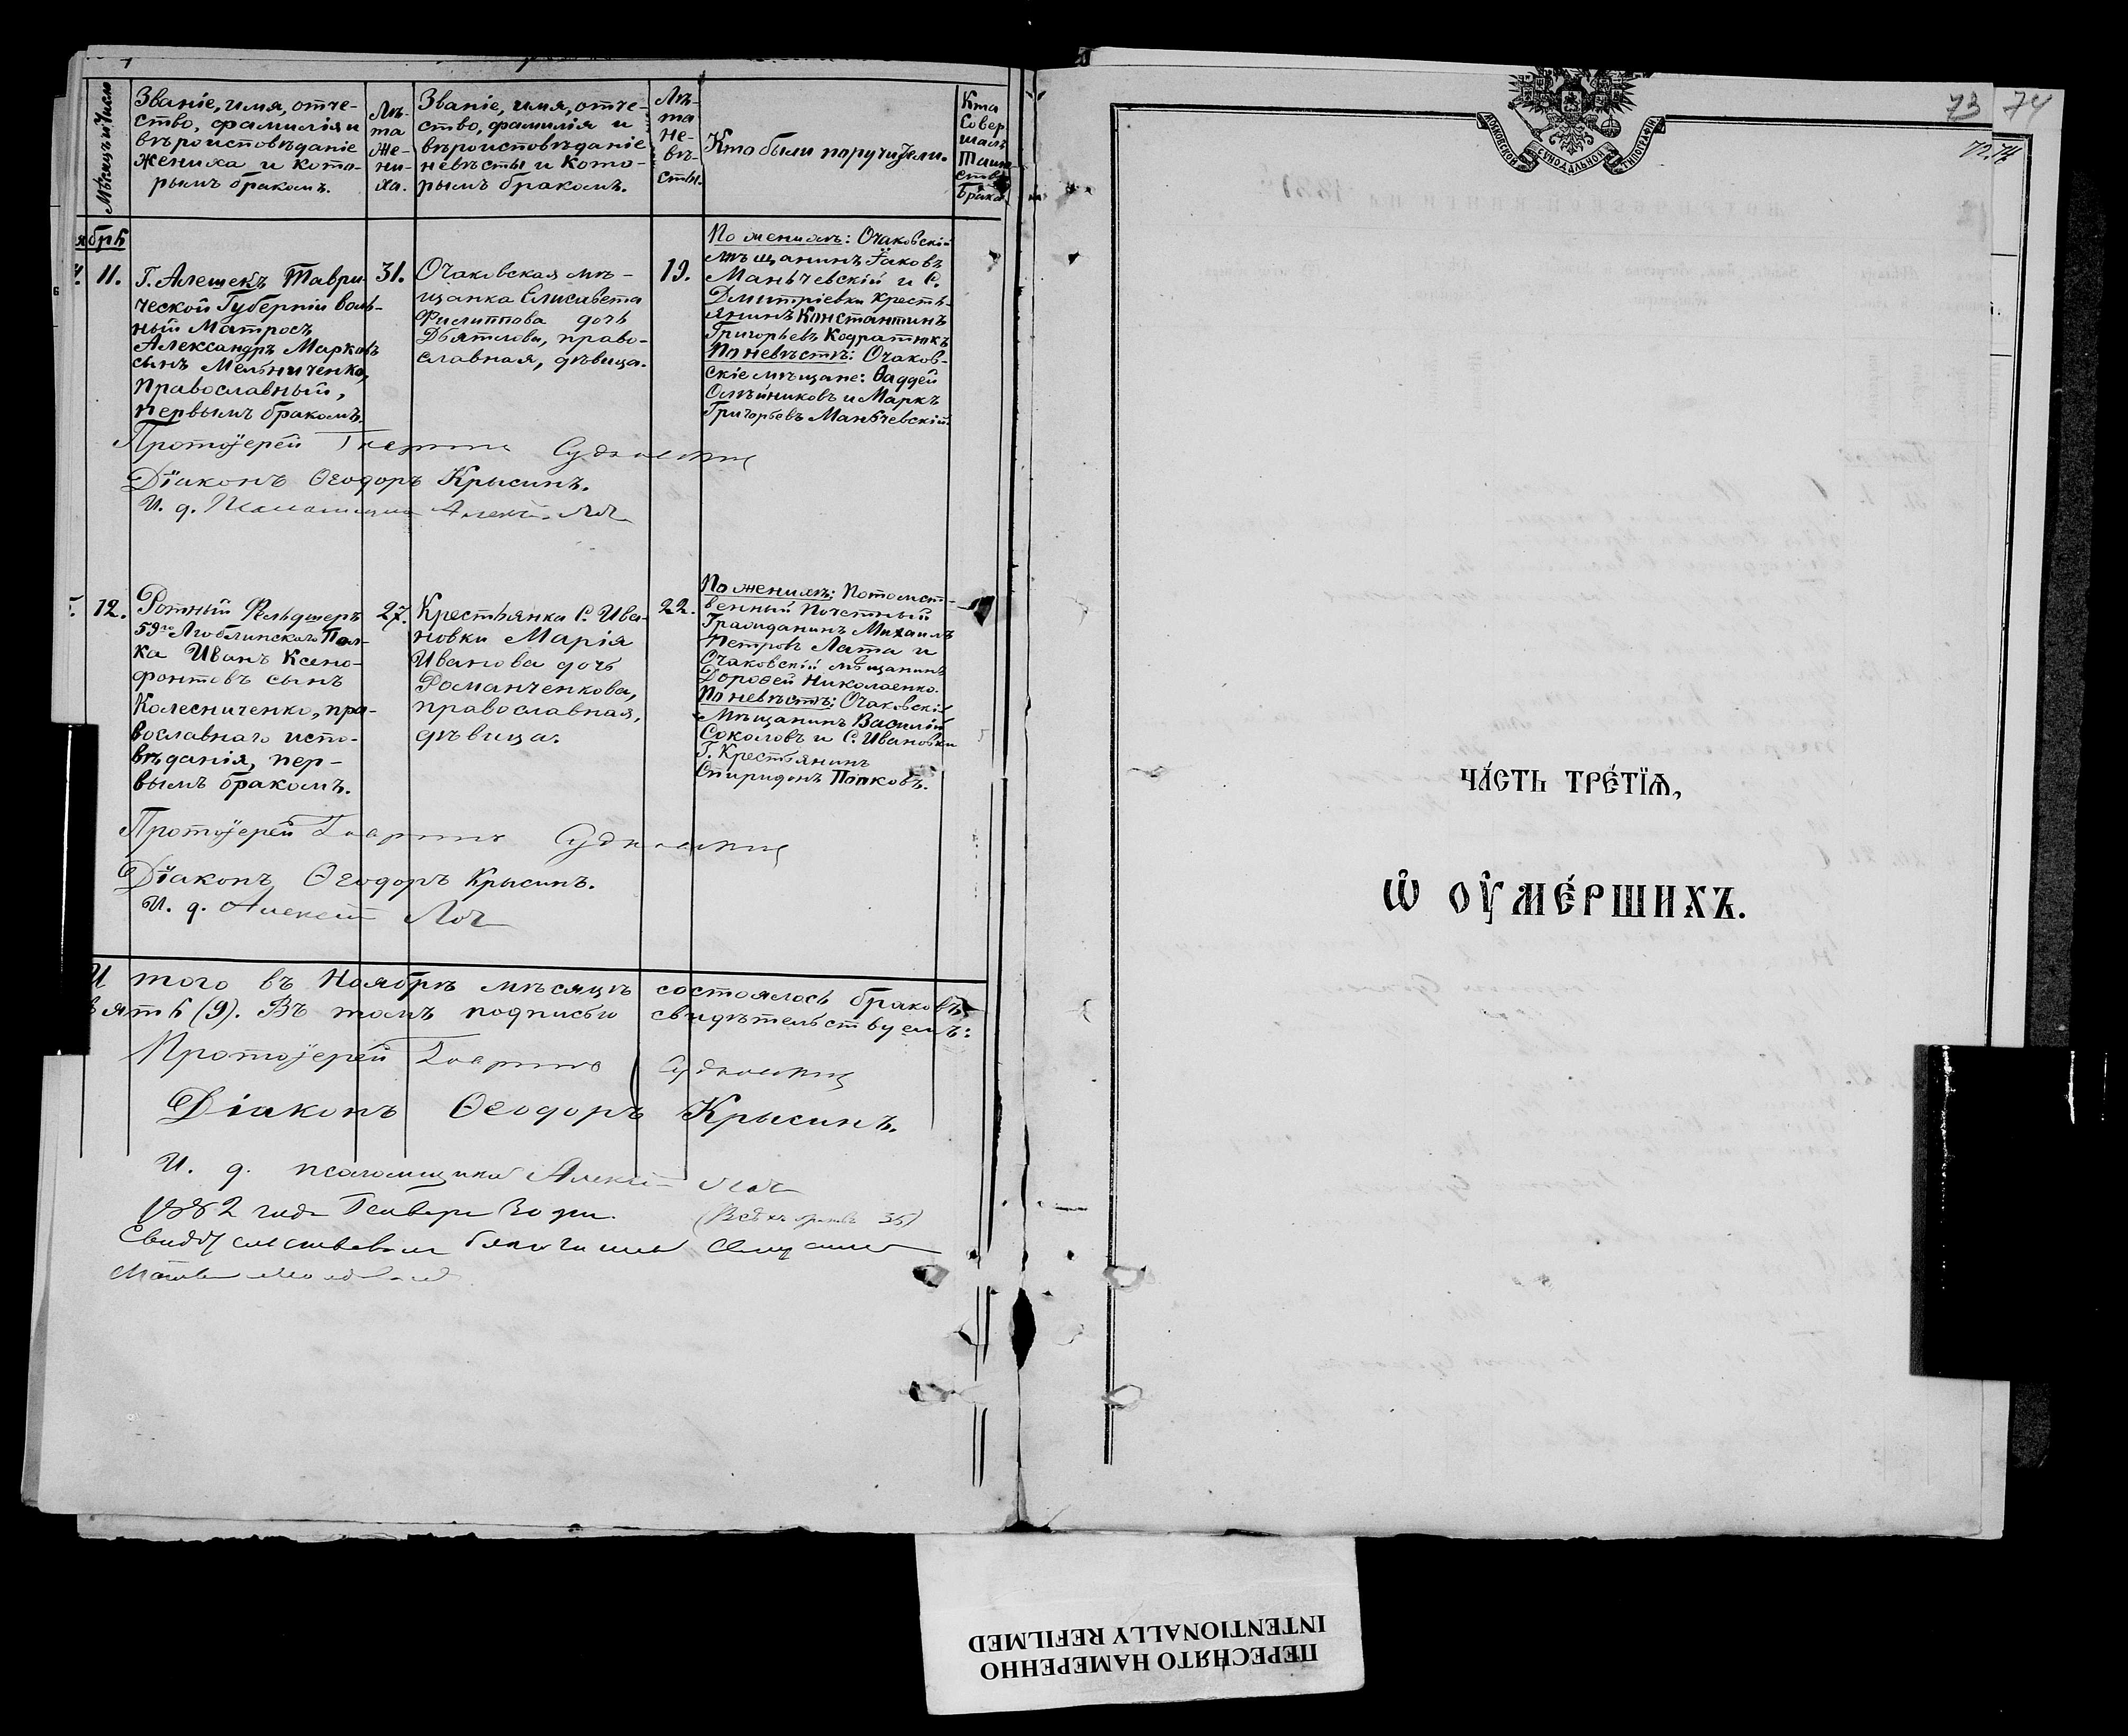 Мѣсяцъ и Число
Званіе, имя, отче-
ство, фамилія и
вѣроисповѣданіе
жениха и кото-
рымъ бракомъ.
Лѣ-
та
же-
ни-
ха.
Званіе, имя, отче-
ство, фамилія и
вѣроисповѣданіе
невѣсты и кото-
рымъ бракомъ.
Лѣ-
та
не-
вѣ-
сты.
Кто были поручители.
Кто
Совер
шалъ
Таин
ство
брака
ябрь
11.
Г. Алешекъ Таври-
ческой Губерніи воль-
ный Матросъ
Александръ Марковъ
сынъ Мельниченко,
Православный,
первымъ бракомъ.
31.
Очаковская мѣ-
щанка Елисавета
Филиппова дочь
Дьятлова, право-
славная, дѣвица.
19.
По жениху: Очаковскій
мѣщанинъ Іаковъ
Маньчевскій и С.
Дмитріевки кресть-
янинъ Константинъ
Григорьевъ Кодратюкъ
По невѣстѣ: Очаков-
скіе мѣщане: Ѳаддей
Олѣйниковъ и Маркъ
Григорьевъ Маньчевскій
Протоіерей Гавріилъ Судковскій
Діаконъ Ѳеодоръ Крысинъ.
И. д. Псаломщика Алексѣй
12.
Ротный Фельдшеръ
59го Люблинскаго Пол-
ка Иванъ Ксено-
фонтовъ сынъ
Колесниченко, пра-
вославнаго испо-
вѣданія, пер-
вымъ бракомъ.
27.
Крестьянка С. Ива-
новки Марія
Иванова дочь
Романченкова,
православная,
дѣвица.
22.
По жениху: Потомст-
венный Почетный
Гражданинъ Михаилъ
Петровъ Лата и
Очаковскій мѣщанинъ
Дороѳей Николаенко.
По невѣстѣ: Очаковскій
Мѣщанинъ Василій
Соколовъ и С. Ивановки
Г. Крестьянинъ
Спиридонъ Попковъ.
Протоіерей Гавріилъ Судковскій
Діаконъ Ѳеодоръ Крысинъ.
И. д. Алексѣй
И того въ Ноябрѣ мѣсяцѣ состоялось браковъ
вять (9). Въ томъ подписью свидѣтельствуемъ:
Протоіерей Гавріилъ Судковскій
Діаконъ Ѳеодоръ Крысинъ.
И. д. псаломщика Алексѣй
1882 года Генваря 30 дня.
(Всѣхъ браковъ 35)
73 74
МОСКОВСКОЙ СѴНОДАЛЬНОЙ ТИПОГРАФІИ
ЧА́СТЬ ТРЕ́ТІѦ,
Ѡ҆ ОУ҆МЕ́РШИХЪ.
ПЕРЕСНЯТО НАМЕРЕННО
INTENTIONALLY REFILMED